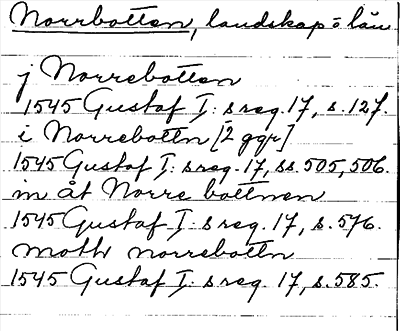 Norrbotten, landskap o län
j Norrebotten
1545 Gustaf I: s reg. 17, s. 127.
i Norrebottn [2 ggr]
1545 Gustaf I: s reg. 17, ss. 505, 506.
m åt Norre bottnen
1545 Gustaf I: s reg. 17, s. 576.
moth norrebottn
1545 Gustaf I: s reg. 17, s. 585.